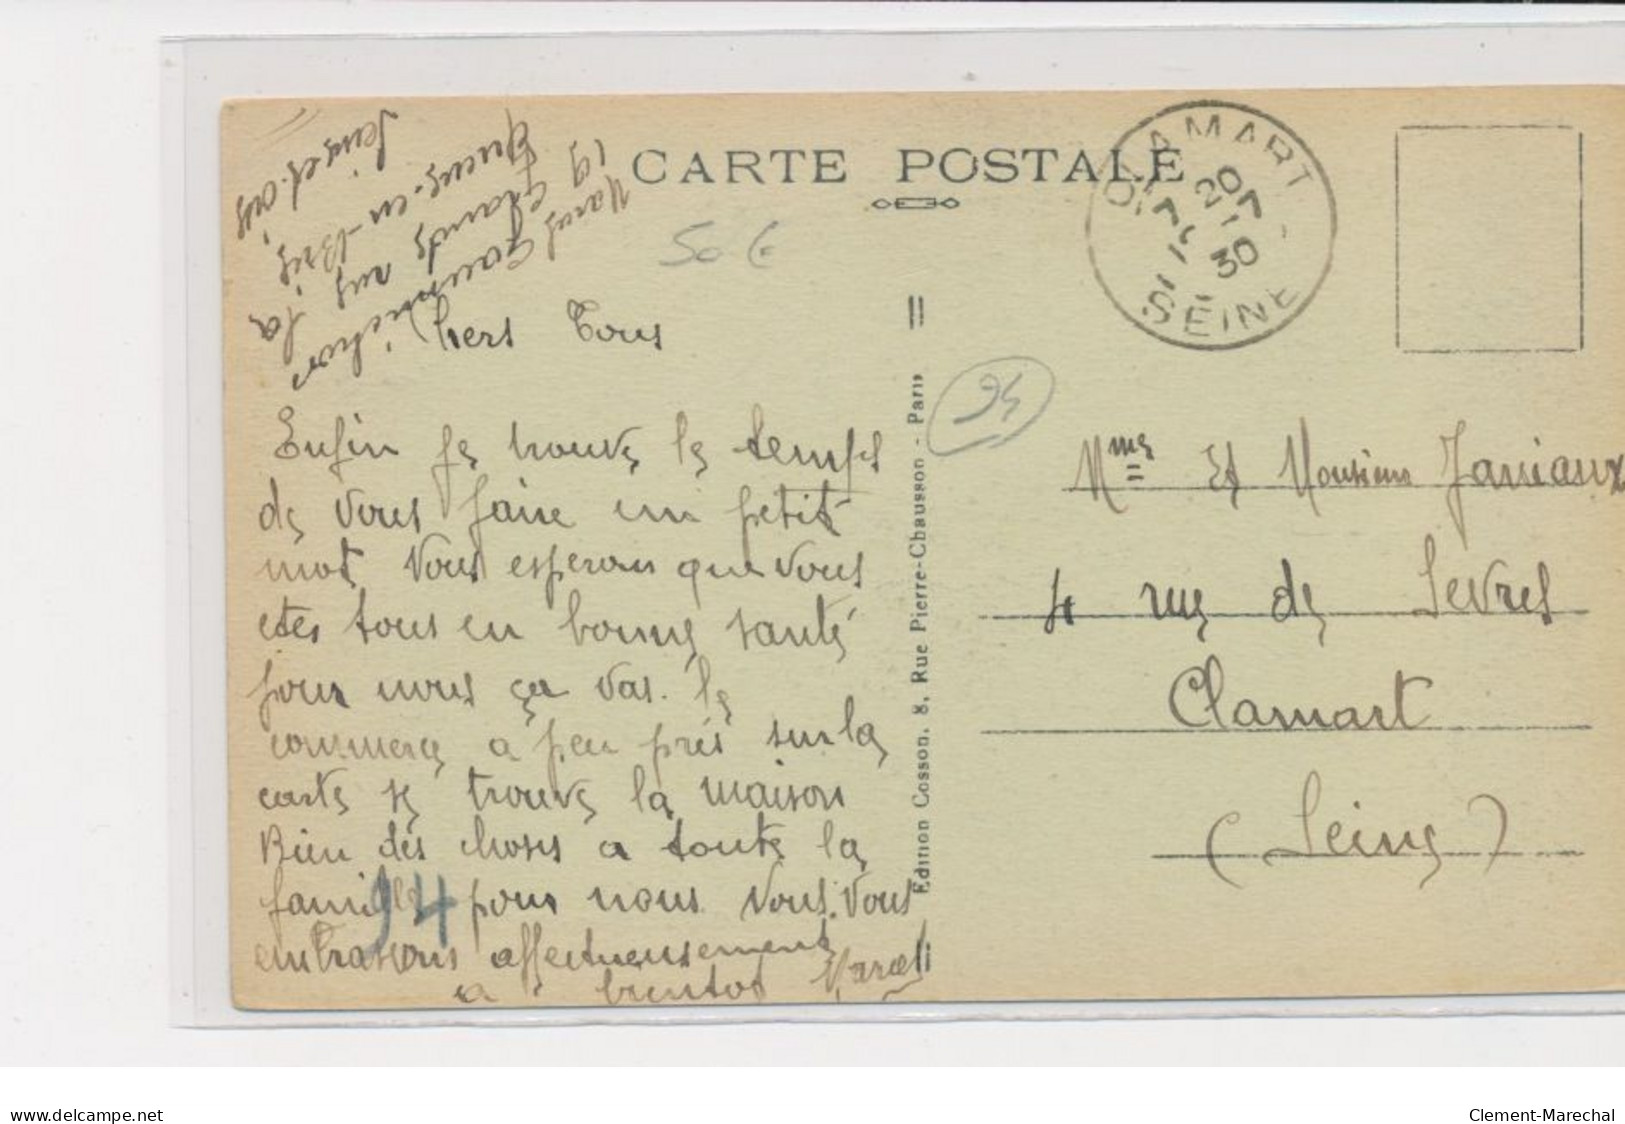 CARTE POSTALE
CLAMART
SEINE
30
50 €
94
Marcel Gaunichon
19 Grande rue
Seine et oise
Chers Tous
Enfin je trouve le temps
de vous faire un petit
mot Vous esperons que vous
etes tous en bonne santé
pour nous ça vas. le
commerce a peu près sur la
carte se trouve la maison
Bien des choses a toute la
famille pour nous Vous. Vous
embrassons affectueusement
a bientot Marcel
94
Edition Cosson, 8, Rue Pierre-Chausson - Paris
Mme Et Monsieur Janiaux
4 rue de Sevres
Clamart
(Seine)
www.delcampe.net
Clement-Marechal